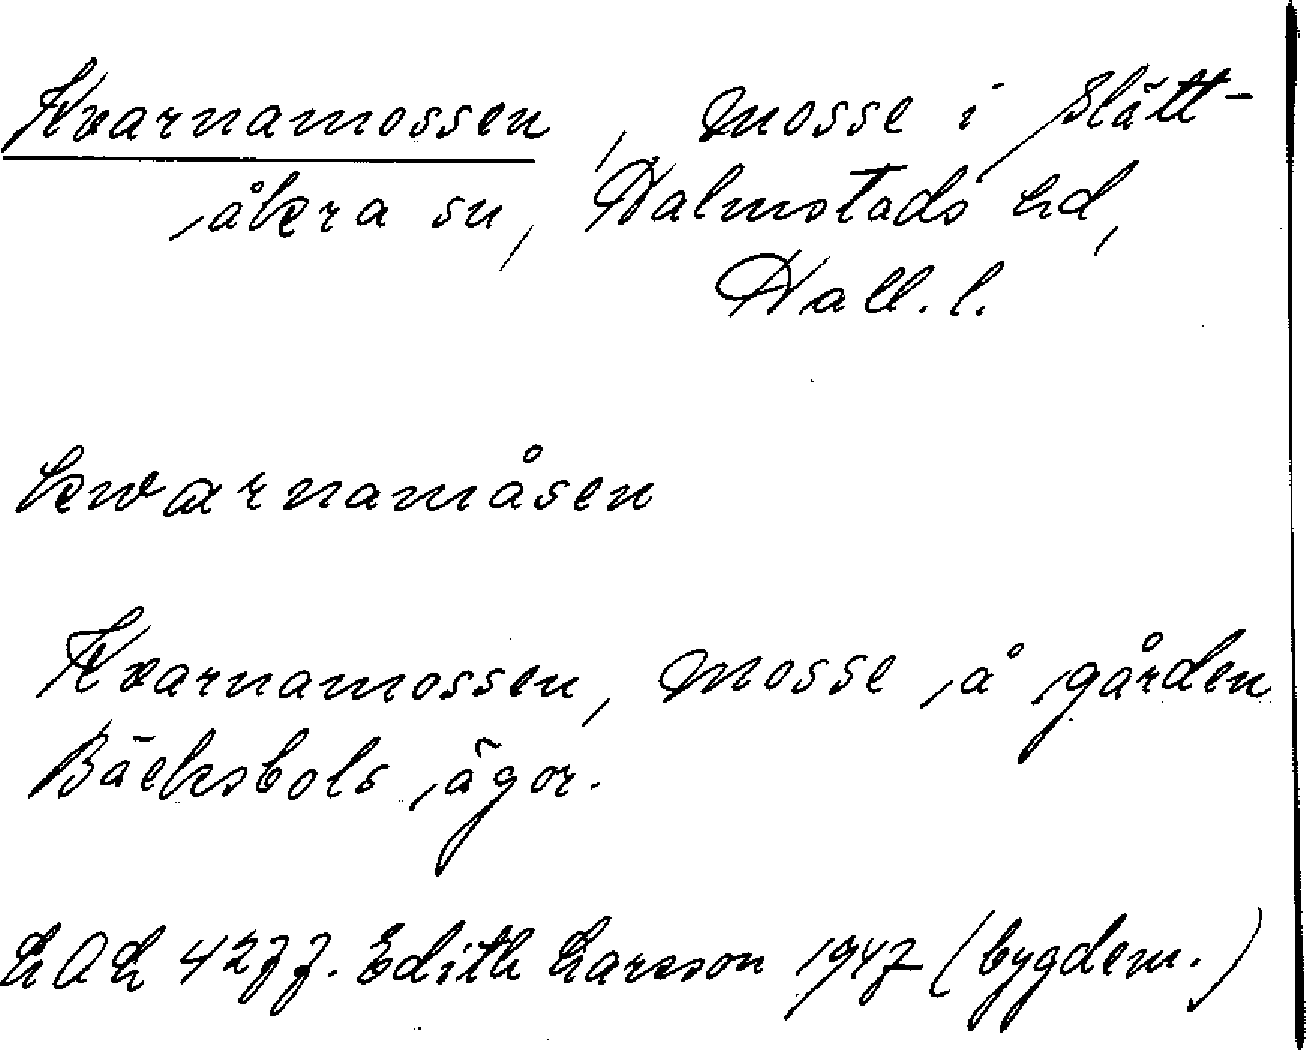 Kvarnamossen, mosse i Slätt-
åkra sn, Halmstads hd,
Hall. l.
kwarnamåsen
Kvarnamossen, mosse å gården
Bäcksbols ägor.
LAL 4277. Edith Larsson 1947 (bygdem.)